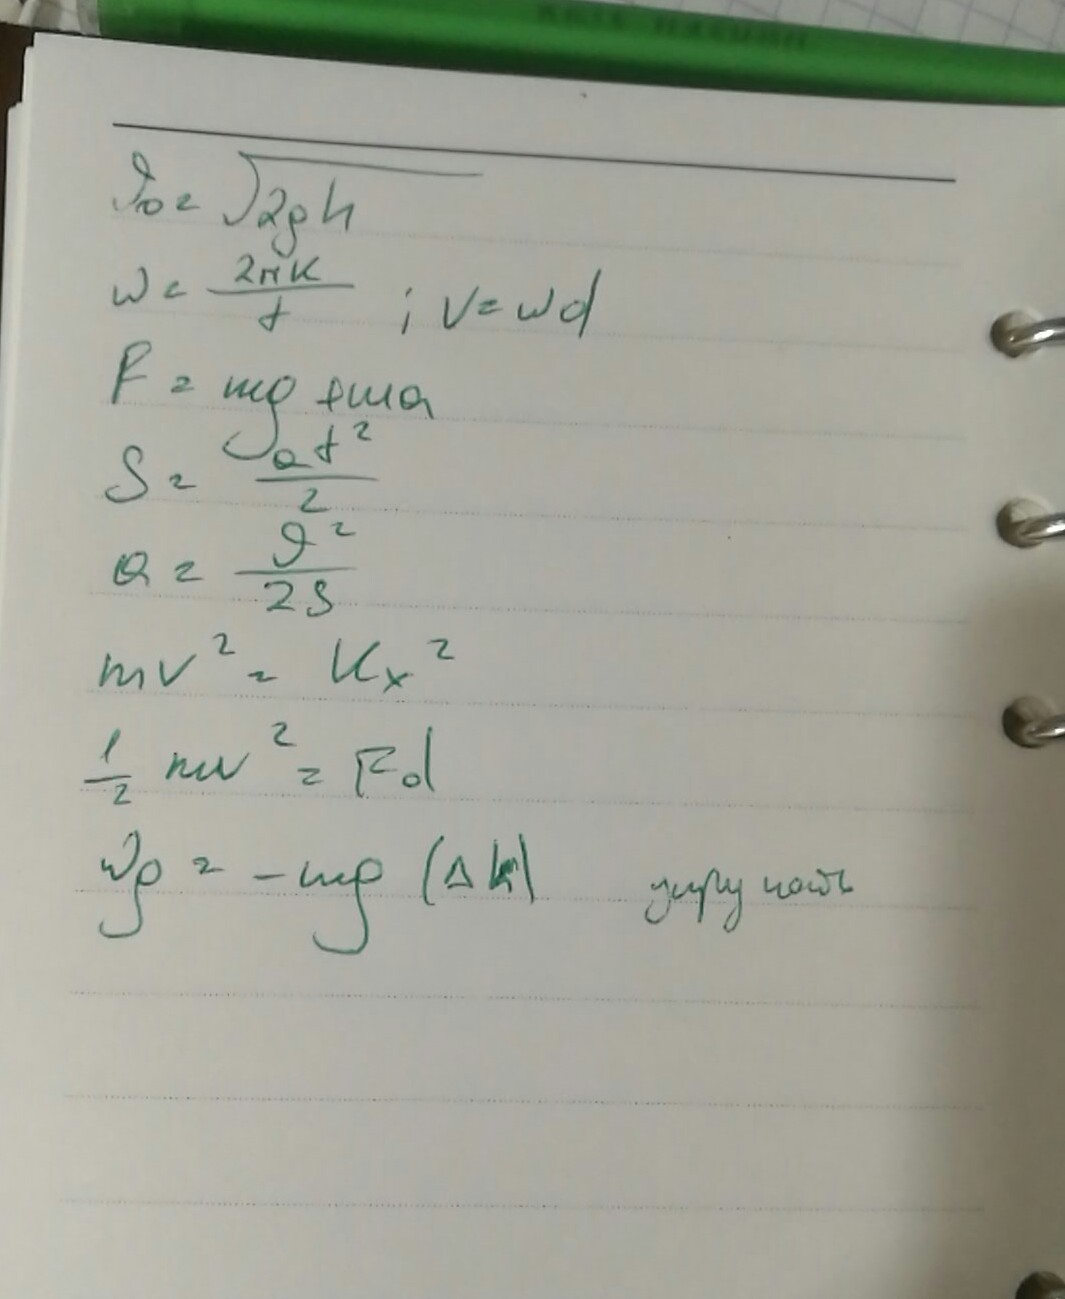 ϑ₀ = √2gh
ω = 2πk/t ; v = ωd
F = mg + ma
S = at²/2
a = ϑ²/2S
mv² = kx²
1/2 mv² = Fd
Wg = -mg (Δh)